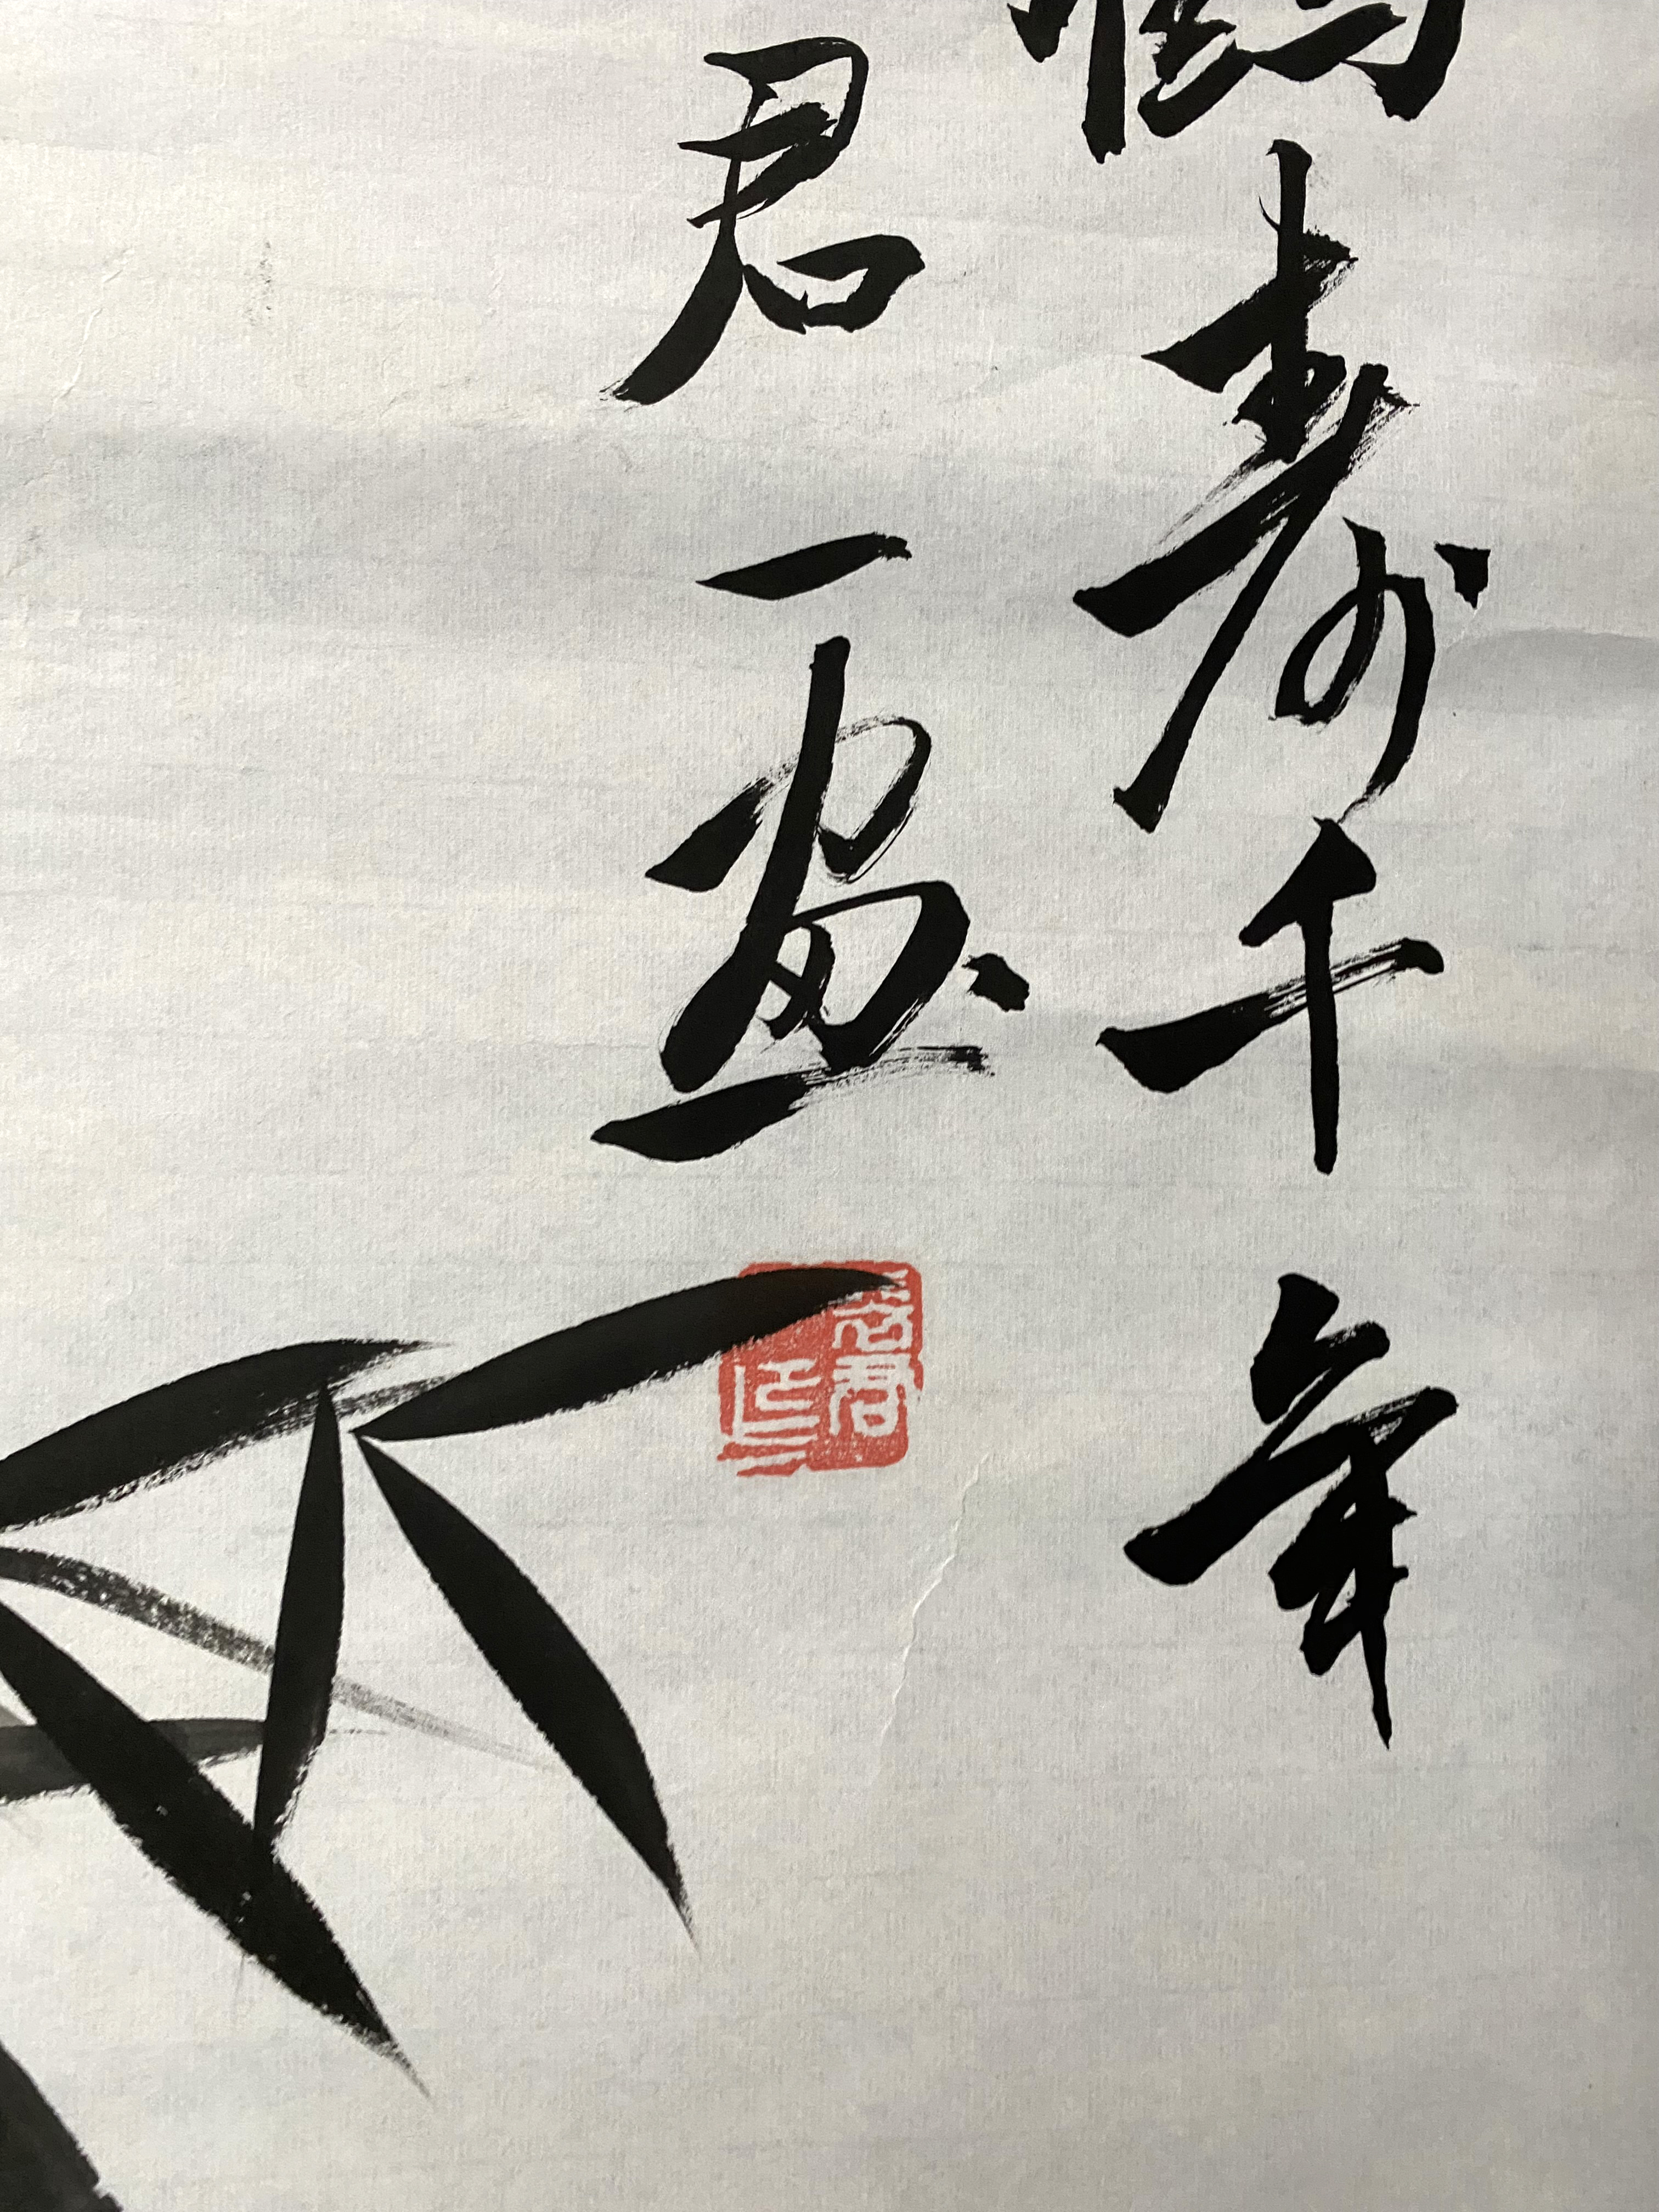 鶴寿千年
君一画